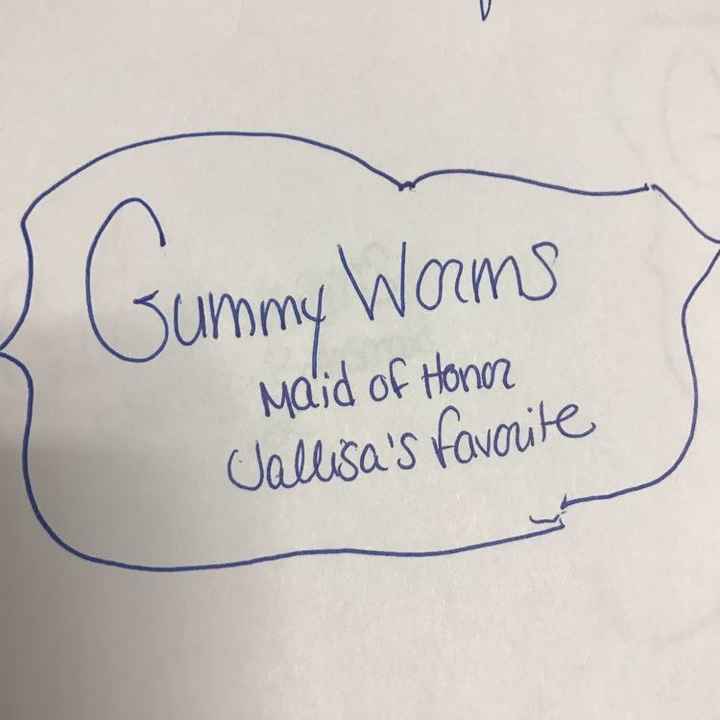 Gummy Worms
Maid of Honor
Jallisa's favorite